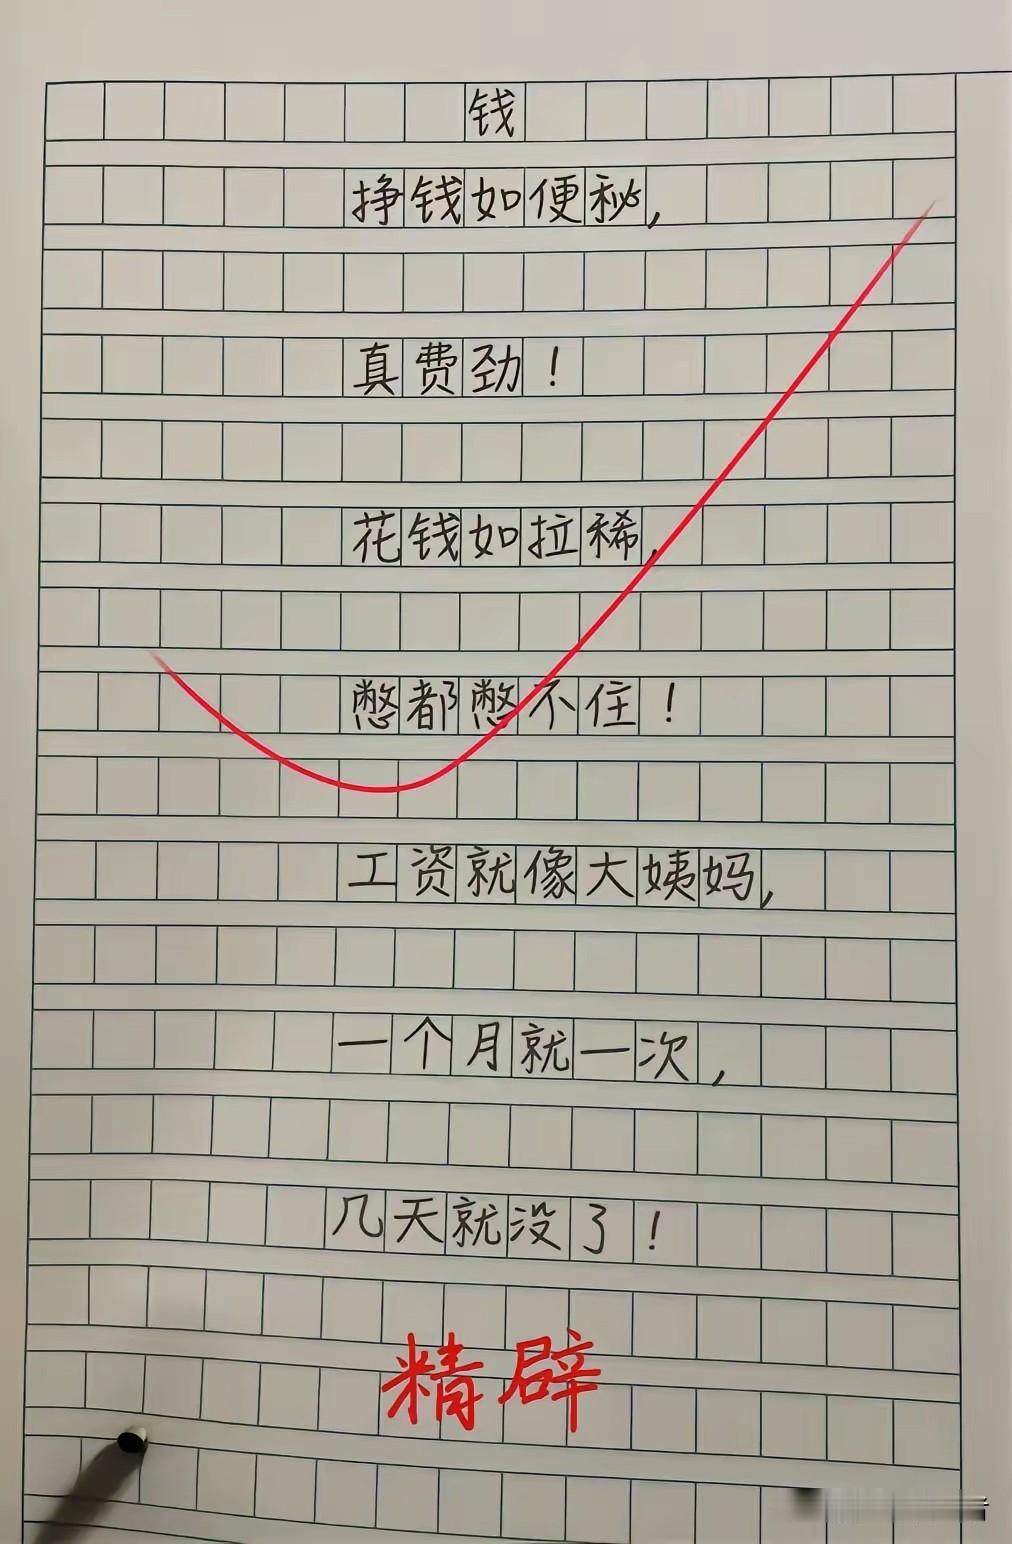 钱
挣钱如便秘,
真费劲！
花钱如拉稀,
憋都憋不住！
工资就像大姨妈,
一个月就一次,
几天就没了！
精辟